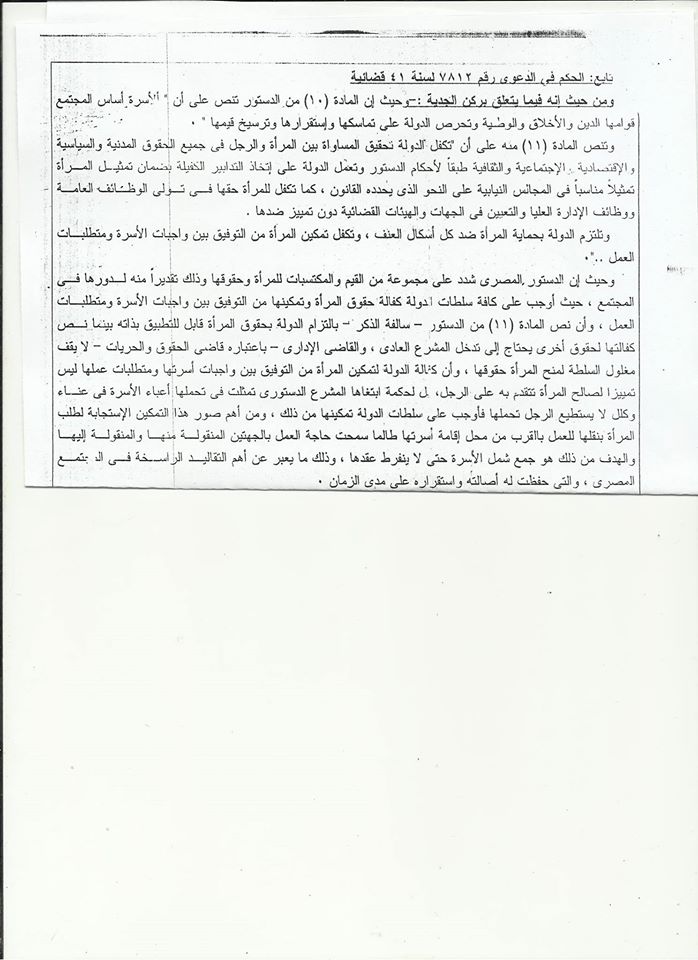 تابع: الحكم في الدعوى رقم ٧٨١٢ لسنة ٤١ قضائية
ومن حيث إنه فيما يتعلق بركن الجدية :- وحيث إن المادة (١٠) من الدستور تنص على أن " الأسرة أساس المجتمع
قوامها الدين والأخلاق والوطنية وتحرص الدولة على تماسكها وإستقرارها وترسيخ قيمها " ٠
وتنص المادة (١١) منه على أن "تكفل الدولة تحقيق المساواة بين المرأة والرجل فى جميع الحقوق المدنية والسياسية
والإقتصادية والإجتماعية والثقافية طبقاً لأحكام الدستور وتعمل الدولة على إتخاذ التدابير الكفيلة بضمان تمثيل المرأة
تمثيلاً مناسباً فى المجالس النيابية على النحو الذى يحدده القانون ، كما تكفل للمرأة حقها فى تولى الوظائف العامة
ووظائف الإدارة العليا والتعيين فى الجهات والهيئات القضائية دون تمييز ضدها ٠
وتلتزم الدولة بحماية المرأة ضد كل أشكال العنف ، وتكفل تمكين المرأة من التوفيق بين واجبات الأسرة ومتطلبات
العمل .."٠
وحيث إن الدستور المصرى شدد على مجموعة من القيم والمكتسبات للمرأة وحقوقها وذلك تقديراً منه لدورها فى
المجتمع ، حيث أوجب على كافة سلطات الدولة كفالة حقوق المرأة وتمكينها من التوفيق بين واجبات الأسرة ومتطلبات
العمل ، وأن نص المادة (١١) من الدستور – سالفة الذكر – بالتزام الدولة بحقوق المرأة قابل للتطبيق بذاته بينما نص
كفالتها لحقوق أخرى يحتاج إلى تدخل المشرع العادى ، والقاضى الإدارى – باعتباره قاضى الحقوق والحريات – لا يقف
مغلول السلطة لمنح المرأة حقوقها ، وأن كفالة الدولة لتمكين المرأة من التوفيق بين واجبات أسرتها ومتطلبات عملها ليس
تمييزا لصالح المرأة تتقدم به على الرجل، بل لحكمة ابتغاها المشرع الدستورى تمثلت فى تحملها أعباء الأسرة فى عناء
وكلل لا يستطيع الرجل تحملها فأوجب على سلطات الدولة تمكينها من ذلك ، ومن أهم صور هذا التمكين الإستجابة لطلب
المرأة بنقلها للعمل بالقرب من محل إقامة أسرتها طالما سمحت حاجة العمل بالجهتين المنقولة منها والمنقولة إليها
والهدف من ذلك هو جمع شمل الأسرة حتى لا ينفرط عقدها ، وذلك ما يعبر عن أهم التقاليد الراسخة فى المجتمع
المصرى ، والتى حفظت له أصالته واستقراره على مدى الزمان ٠